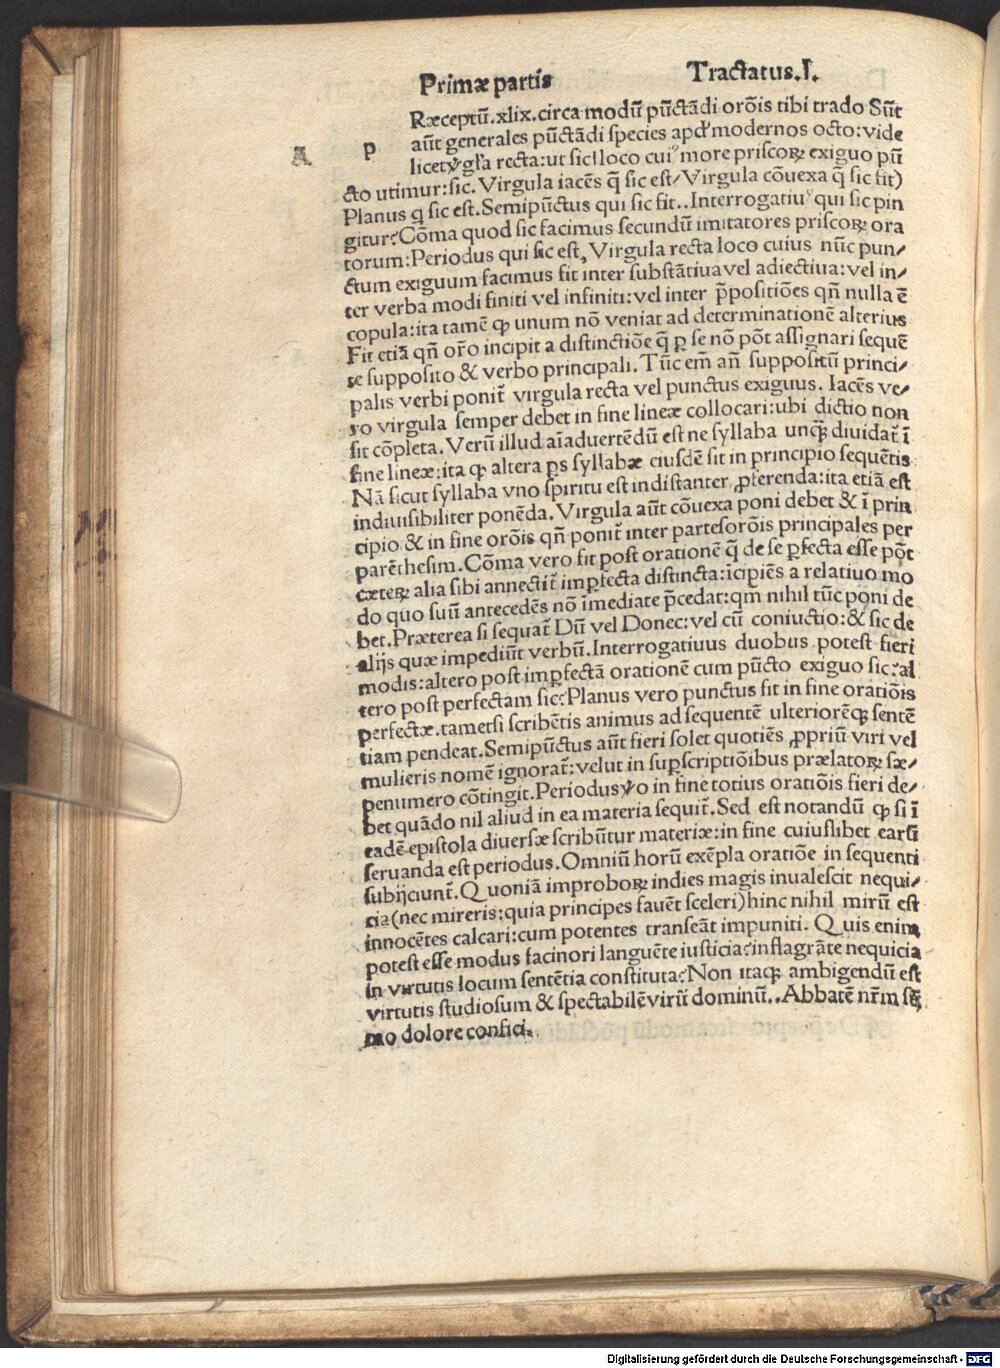 Primæ partis Tractatus.I.
Ræceptū.xlix.circa modū pūctādi orōis tibi trado Sūt
A p aūt generales pūctādi species apd' modernos octo:vide
licet ỽgl'a recta:ut sic|loco cuiꝰ more priscoꝝ exiguo pū
cto utimur:sic. Virgula iacēs q̄ sic est/Virgula cōuexa q̄ sic fit)
Planus q̄ sic est.Semipūctus qui sic fit..Interrogatiuꝰ qui sic pin
gitur?Cōma quod sic facimus secundū imitatores priscoꝝ ora
torum:Periodus qui sic est, Virgula recta loco cuius nūc pun/
ctum exiguum facimus fit inter substātiua vel adiectiua:vel in/
ter verba modi finiti vel infiniti:vel inter p̄positiōes qn̄ nulla ē
copula:ita tamē ꝙ unum nō veniat ad determinationē alterius
Fit etiā qn̄ or̄o incipit a distinctiōe q̄ ꝑ se nō pōt assignari sequē
te supposito & verbo principali. Tūc em̄ an̄ suppositū princi/
palis verbi ponit̄ virgula recta vel punctus exiguus. Iacēs ve/
ro virgula semper debet in fine lineæ collocari:ubi dictio non
sit cōpleta. Verū illud aīaduertēdū est ne syllaba unqꝫ diuidat̄ ī
fine lineæ:ita ꝙ altera ꝑs syllabæ eiusdē sit in principio sequētis
Nā sicut syllaba vno spiritu est indistanter ꝓferenda:ita etiā est
indiuisibiliter ponēda. Virgula aūt cōuexa poni debet & ī prin
cipio & in fine orōis qn̄ ponit̄ inter partes orōis principales per
parēthesim.Cōma vero fit post orationē q̄ de se ꝑfecta esse pōt
cæteꝝ alia sibi annectit̄ imꝑfecta distincta:īcipiēs a relatiuo mo
do quo suū antecedēs nō īmediate p̄cedat:qm̄ nihil tūc poni de
bet.Præterea si sequat̄ Dū vel Donec:vel cū coniuctio:& sic de
alijs quæ impediūt verbū.Interrogatiuus duobus potest fieri
modis:altero post imꝑfectā orationē cum pūcto exiguo sic:al
tero post perfectam sic?Planus vero punctus fit in fine oratiōis
perfectæ.tametsi scribētis animus ad sequentē ulteriorēqꝫ sentē
tiam pendeat.Semipūctus aūt fieri solet quotiēs ꝓpriū viri vel
mulieris nomē ignorat̄:velut in suꝑscriptiōibus prælatoꝝ sæ/
penumero cōtingit.Periodus ỽo in fine totius oratiōis fieri de/
bet quādo nil aliud in ea materia sequit̄.Sed est notandū ꝙ si ī
eadē epistola diuersæ scribūtur materiæ:in fine cuiuslibet earū
seruanda est periodus.Omniū horū exēpla oratiōe in sequenti
subijciunt̄.Quoniā improboꝝ indies magis inualescit nequi/
cia(nec mireris:quia principes fauēt sceleri)hinc nihil mirū est
innocētes calcari:cum potentes transeāt impuniti. Quis enim
potest esse modus facinori languēte iusticia?inflagrāte nequicia
in virtutis locum sentētia constituta?Non itaqꝫ ambigendū est
virtutis studiosum & spectabilē virū dominū..Abbatē nr̄m sū
mo dolore confici,
Digitalisierung gefördert durch die Deutsche Forschungsgemeinschaft - DFG